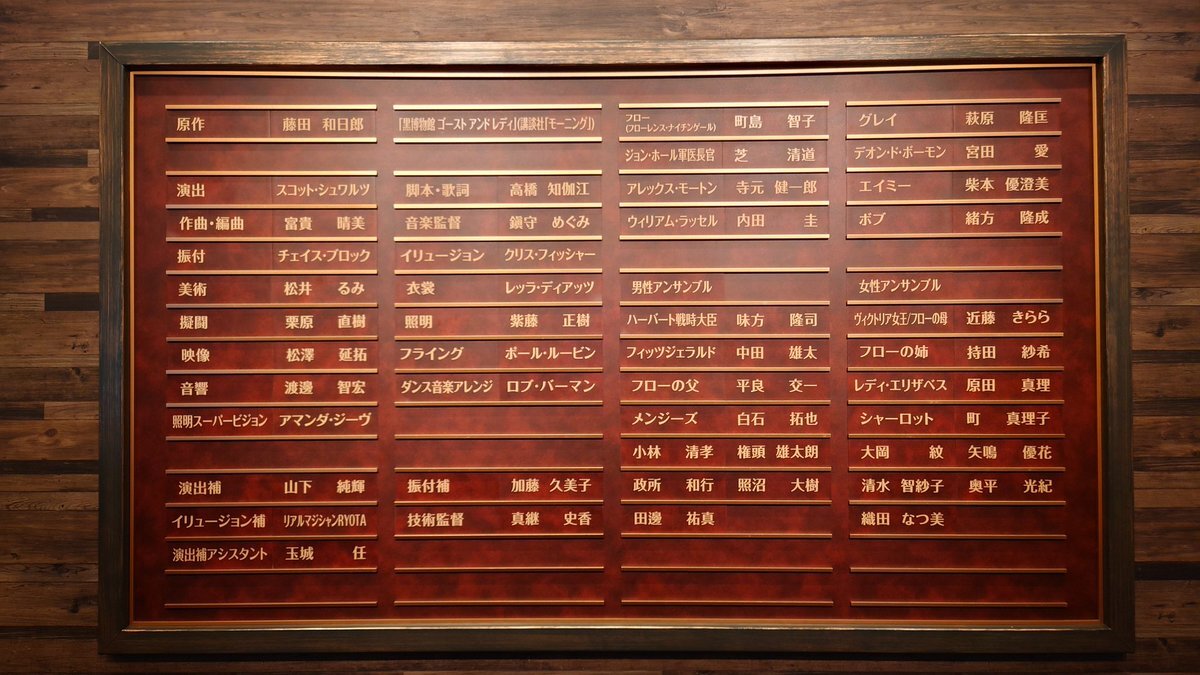 原作 藤田 和日郎
「黒博物館 ゴースト アンド レディ」(講談社「モーニング」)
演出 スコット・シュワルツ
脚本・歌詞 高橋 知伽江
作曲・編曲 富貴 晴美
音楽監督 鎭守 めぐみ
振付 チェイス・ブロック
イリュージョン クリス・フィッシャー
美術 松井 るみ
衣裳 レッラ・ディアッツ
擬闘 栗原 直樹
照明 紫藤 正樹
映像 松澤 延拓
フライング ポール・ルービン
音響 渡邊 智宏
ダンス音楽アレンジ ロブ・バーマン
照明スーパービジョン アマンダ・ジーヴ
演出補 山下 純輝
振付補 加藤 久美子
イリュージョン補 リアルマジシャンRYOTA
技術監督 真継 史香
演出補アシスタント 玉城 任
フロー
(フローレンス・ナイチンゲール) 町島 智子
グレイ 萩原 隆匡
ジョン・ホール軍医長官 芝 清道
デオン・ド・ボーモン 宮田 愛
アレックス・モートン 寺元 健一郎
エイミー 柴本 優澄美
ウィリアム・ラッセル 内田 圭
ボブ 緒方 隆成
男性アンサンブル
女性アンサンブル
ハーバート戦時大臣 味方 隆司
ヴィクトリア女王/フローの母 近藤 きらら
フィッツジェラルド 中田 雄太
フローの姉 持田 紗希
フローの父 平良 交一
レディ・エリザベス 原田 真理
メンジーズ 白石 拓也
シャーロット 町 真理子
小林 清孝 権頭 雄太朗
大岡 紋 矢鳴 優花
政所 和行 照沼 大樹
清水 智紗子 奥平 光紀
田邊 祐真
織田 なつ美